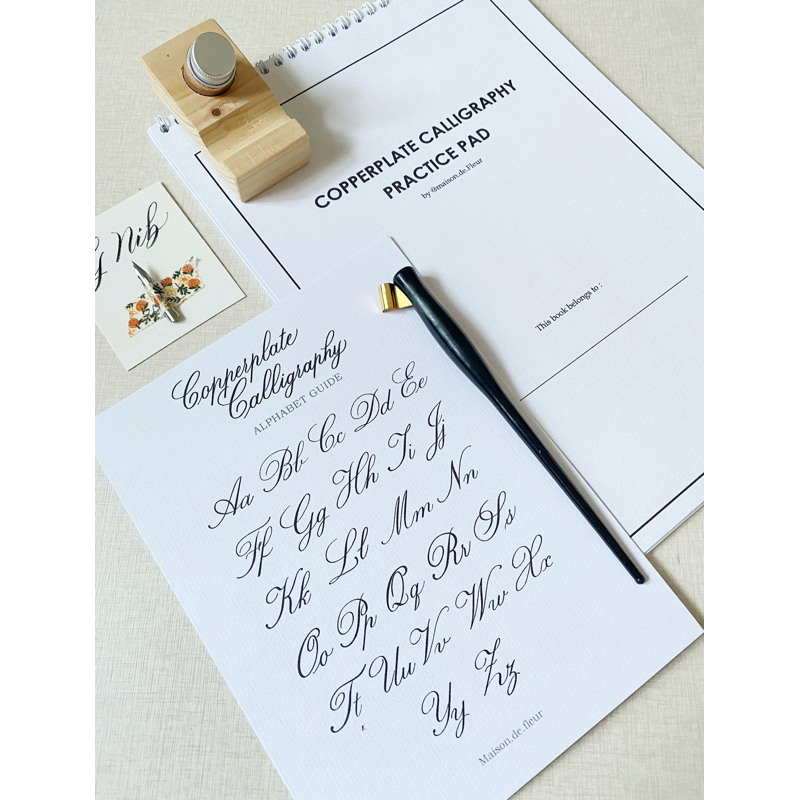 COPPERPLATE CALLIGRAPHY
PRACTICE PAD
by @maison.de.Fleur
This book belongs to :
G Nib
Copperplate
Calligraphy
ALPHABET GUIDE
Aa Bb Cc Dd Ee
Ff Gg Hh Ii Jj
Kk Ll Mm Nn
Oo Pp Qq Rr Ss
Tt Uu Vv Ww Xx
Yy Zz
Maison.de.fleur